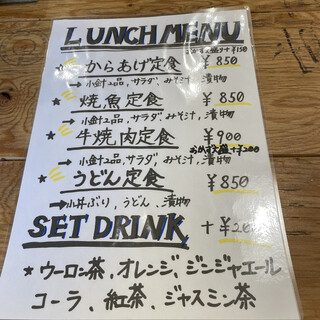 LUNCH MENU
おかず大盛り+¥150
★からあげ定食 ¥850
→小鉢2品、サラダ、みそ汁、漬物
★焼魚定食 ¥850
→小鉢2品、サラダ、みそ汁、漬物
★牛焼肉定食 ¥900
おかず大盛+¥200
→小鉢2品、サラダ、みそ汁、漬物
★うどん定食 ¥850
→小丼ぶり、うどん、漬物
SET DRINK +¥20
★ウーロン茶、オレンジ、ジンジャエール
コーラ、紅茶、ジャスミン茶